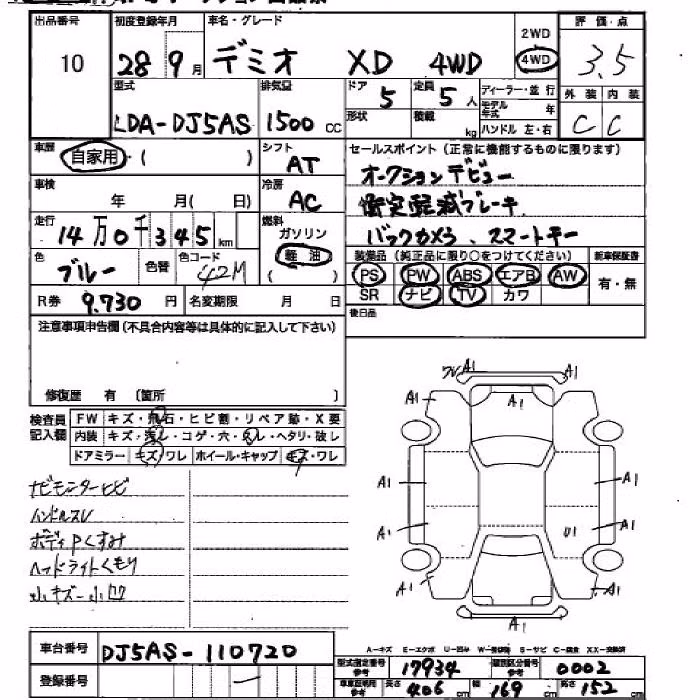 出品番号 初度登録年月 車名・グレード 評価・点
10 28 9月 デミオ XD 4WD 2WD 4WD 3.5
型式 排気量 ドア 5 定員 5人 ディーラー・並行 外装 内装
LDA-DJ5AS 1500 CC 形状 積載 kg モデル年式 年 C C
ハンドル 左・右
車歴 自家用・( ) シフト AT セールスポイント(正常に機能するものに限ります)
オークションデビュー
車検 年 月( 日) 冷房 AC 衝突軽減ブレーキ
走行 14万0千345km 燃料 ガソリン 軽油 ( ) バックカメラ、スマートキー
色 ブルー 色替 色コード 42M 装備品(純正品に限り○をつけてください) 新車保証書
PS PW ABS エアB AW 有・無
R券 9,730円 名変期限 月 日 SR ナビ TV カワ
後日品
注意事項申告欄(不具合内容等は具体的に記入して下さい)
修復歴 有 〔箇所 〕
検査員記入欄 FW キズ・飛石・ヒビ割・リペア跡・X要
内装 キズ・汚レ・コゲ・穴・スレ・ヘタリ・破レ
ドアミラー キズ/ワレ ホイール・キャップ キズ・ワレ
ワレ A1
A1 A1 A1
A1 A1
A1 U1 A1
A1 A1
A1
ナビモニターヒビ
ハンドルスレ
ボディPくすみ
ヘッドライトくもり
小キズ・小凹
A-キズ E-エクボ U-凹み W-補修跡 S-サビ C-腐食 XX-交換済
車台番号 DJ5AS-110720
型式指定番号 参考 17934 類別区分番号 参考 0002
登録番号 —
車庫証明用 参考 長さ 406 cm 幅 169 cm 高さ 152 cm